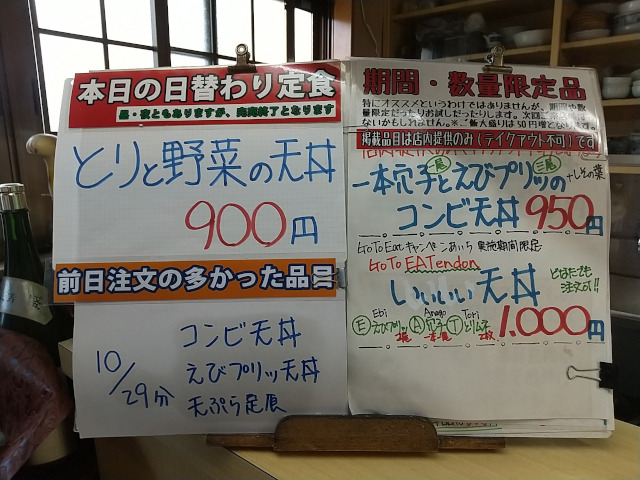 本日の日替わり定食
昼・夜ともありますが、完売終了となります
とりと野菜の天丼
900円
前日注文の多かった品目
コンビ天丼
10/29分
えびプリッ天丼
天ぷら定食
期間・数量限定品
特にオススメというわけではありませんが、期間や数
量限定だったりお試しだったりします。次回
ないかもしれません。※ご飯大盛りは50円増となります。
掲載品目は店内提供のみ(テイクアウト不可)です
一本穴子とえびプリッの
一尾
三尾
+しその葉
コンビ天丼 950円
Go To Eatキャンペーンあいち 実施期間限定
Go To EATendon
いいいい天丼
どなたでも
注文可!!
Ebi Anago Tori
Eえびプリッ A穴子 Tとりムネ
2尾 一本・尾 2枚
1,000円